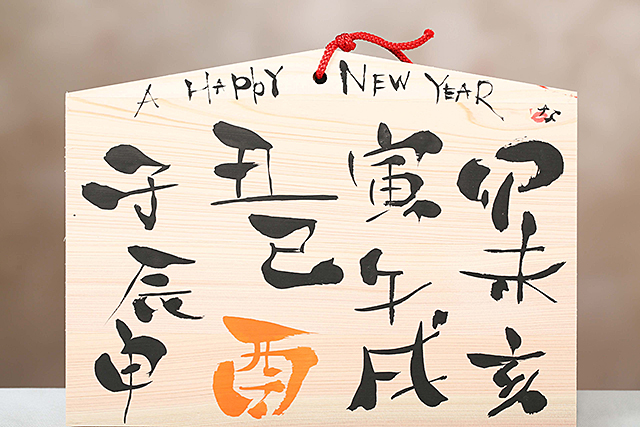 A HAPPY NEW YEAR
子丑寅卯
辰巳午未
申酉戌亥